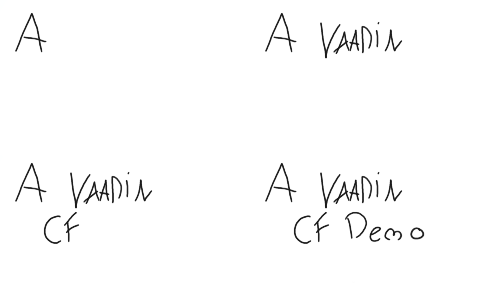 A
A VAADiN
A VAADiN
CF
A VAADiN
CF Demo